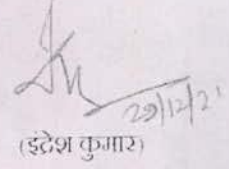 29/12/21
(इंद्रेश कुमार)